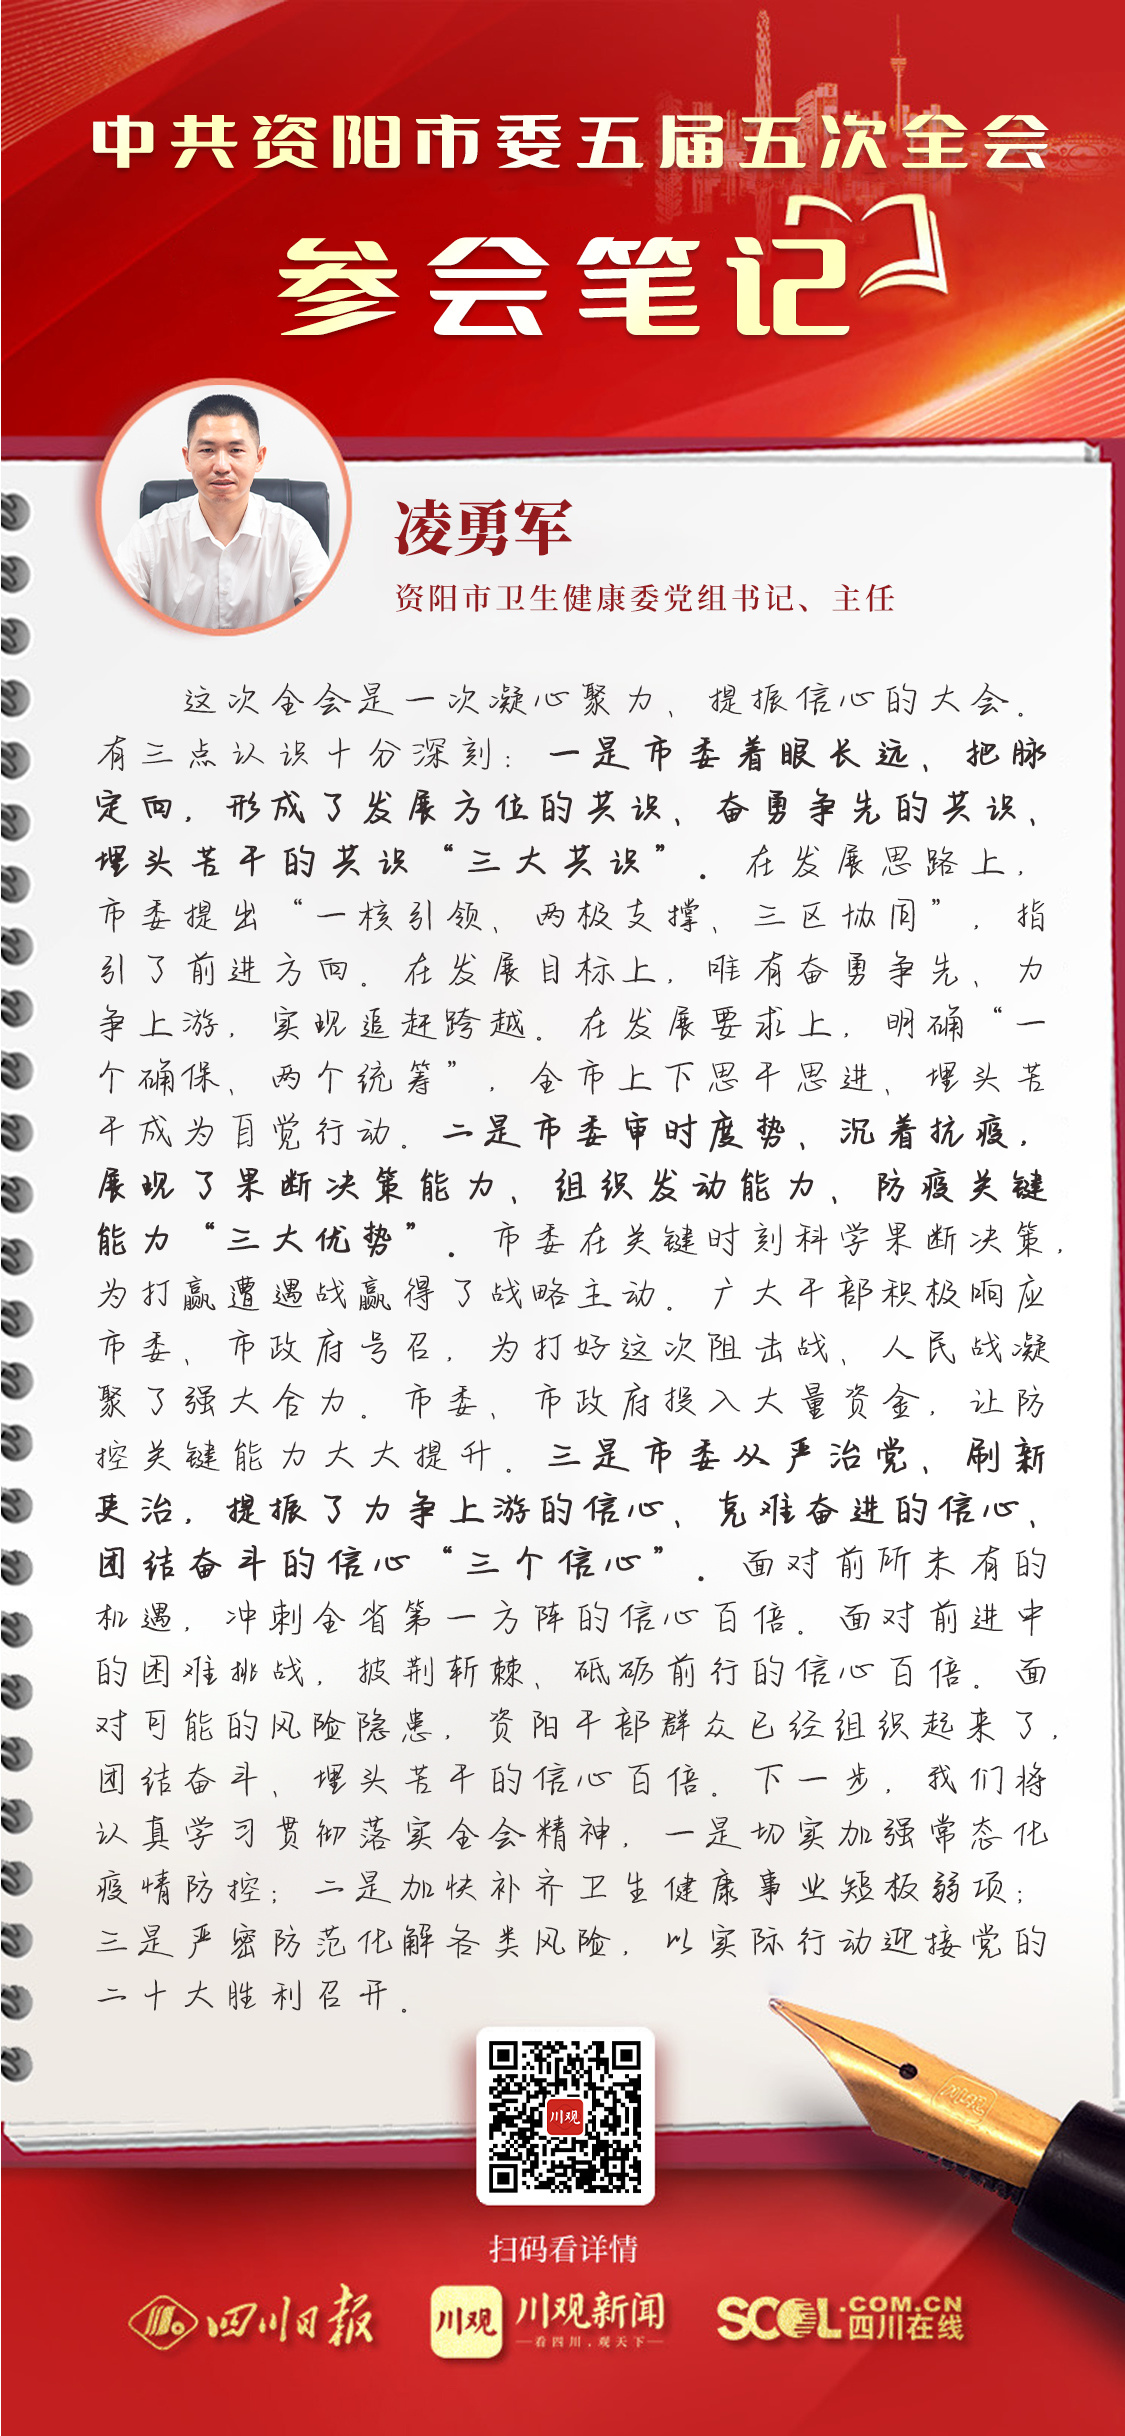 中共资阳市委五届五次全会
参会笔记
凌勇军
资阳市卫生健康委党组书记、主任
这次全会是一次凝心聚力、提振信心的大会。
有三点认识十分深刻：一是市委着眼长远、把脉
定向，形成了发展方位的共识、奋勇争先的共识、
埋头苦干的共识“三大共识”。在发展思路上，
市委提出“一核引领、两极支撑、三区协同”，指
引了前进方向。在发展目标上，唯有奋勇争先、力
争上游，实现追赶跨越。在发展要求上，明确“一
个确保、两个统筹”，全市上下思干思进、埋头苦
干成为自觉行动。二是市委审时度势、沉着抗疫，
展现了果断决策能力、组织发动能力、防疫关键
能力“三大优势”。市委在关键时刻科学果断决策，
为打赢遭遇战赢得了战略主动。广大干部积极响应
市委、市政府号召，为打好这次阻击战、人民战凝
聚了强大合力。市委、市政府投入大量资金，让防
控关键能力大大提升。三是市委从严治党、刷新
吏治，提振了力争上游的信心、克难奋进的信心、
团结奋斗的信心“三个信心”。面对前所未有的
机遇，冲刺全省第一方阵的信心百倍。面对前进中
的困难挑战，披荆斩棘、砥砺前行的信心百倍。面
对可能的风险隐患，资阳干部群众已经组织起来了，
团结奋斗、埋头苦干的信心百倍。下一步，我们将
认真学习贯彻落实全会精神，一是切实加强常态化
疫情防控；二是加快补齐卫生健康事业短板弱项；
三是严密防范化解各类风险，以实际行动迎接党的
二十大胜利召开。
川观
扫码看详情
四川日报
川观 川观新闻
看四川，观天下
SCOL.COM.CN
四川在线